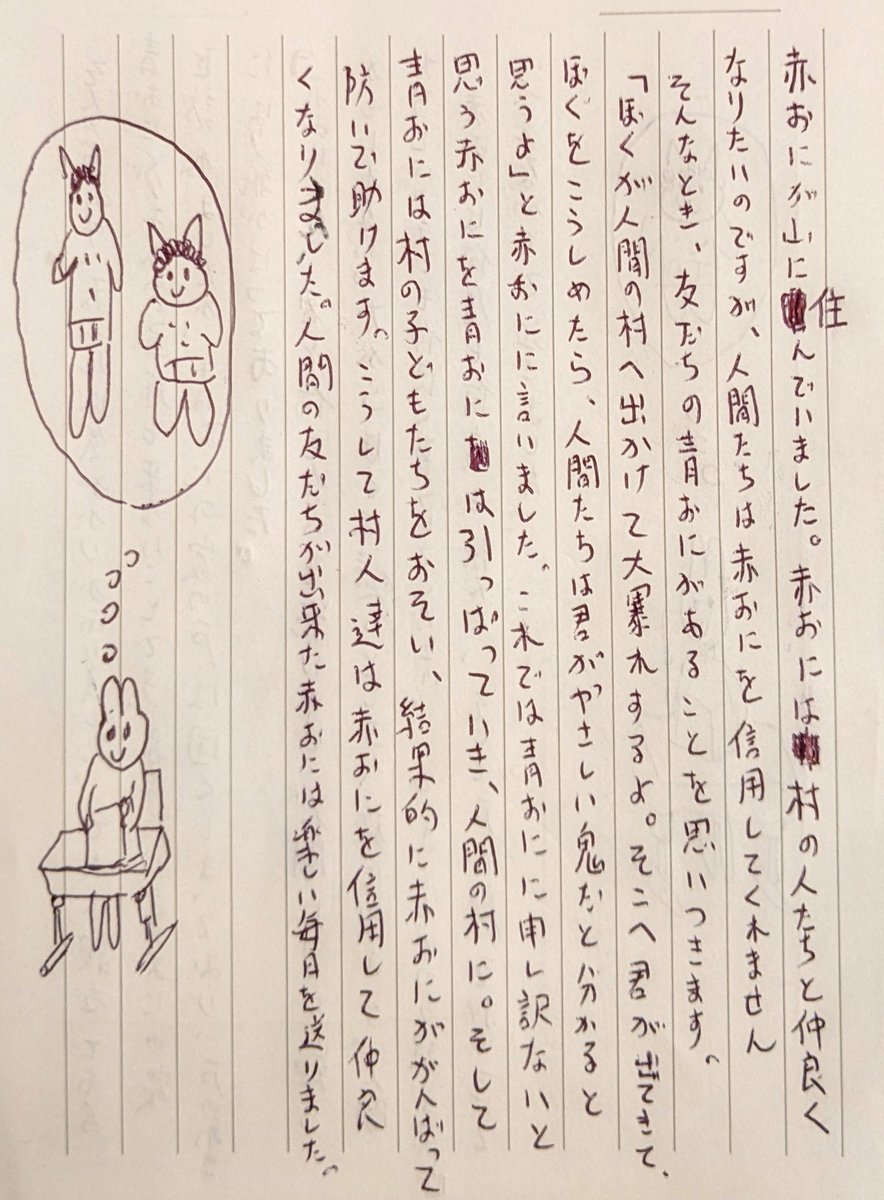 赤おにが山に住んでいました。赤おには村の人たちと仲良く
なりたいのですが、人間たちは赤おにを信用してくれません
そんなとき、友だちの青おにがあることを思いつきます。
「ぼくが人間の村へ出かけて大暴れするよ。そこへ君が出てきて、
ぼくをこらしめたら、人間たちは君がやさしい鬼だと分かると
思うよ」と赤おにに言いました。これでは青おにに申し訳ないと
思う赤おにを青おには引っぱっていき、人間の村に。そして
青おには村の子どもたちをおそい、結果的に赤おにががんばって
防いで助けます。こうして村人達は赤おにを信用して仲良
くなりました。人間の友だちが出来た赤おには楽しい毎日を送りました。